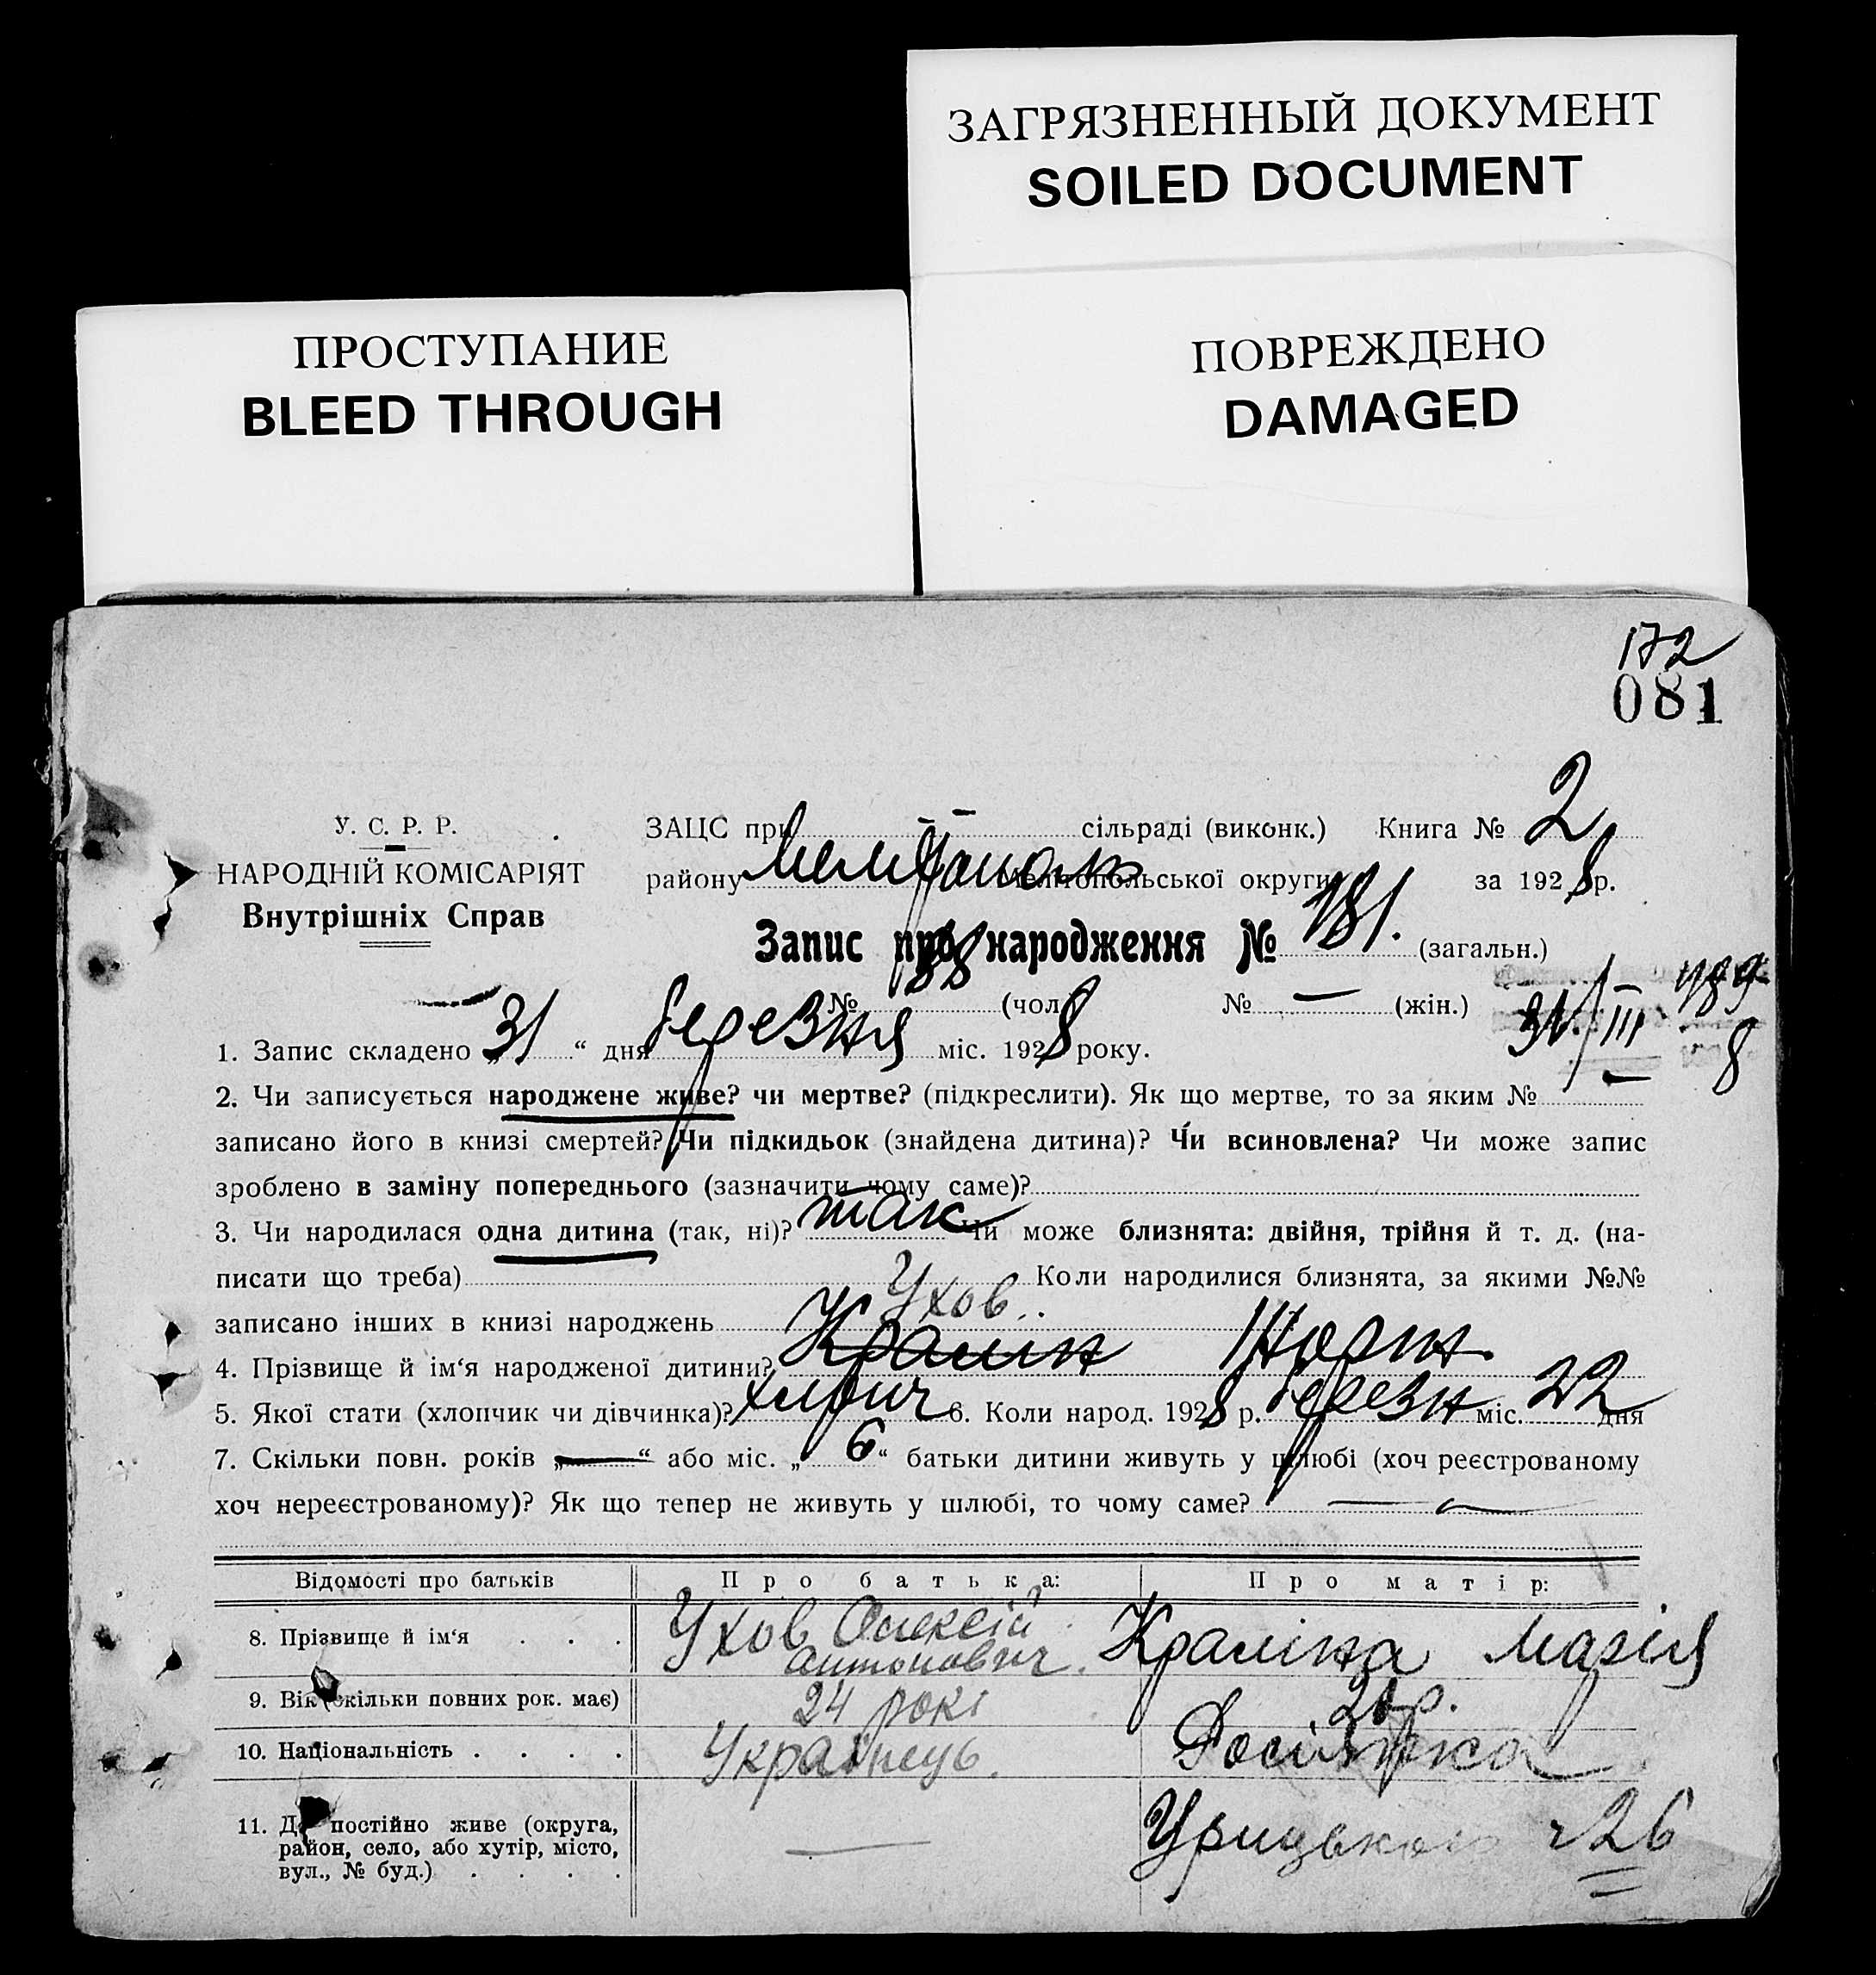 ЗАГРЯЗНЕННЫЙ ДОКУМЕНТ
SOILED DOCUMENT
ПРОСТУПАНИЕ
BLEED THROUGH
ПОВРЕЖДЕНО
DAMAGED
172
081
У. С. Р. Р.
НАРОДНІЙ КОМІСАРІЯТ
Внутрішніх Справ
ЗАЦС при сільраді (виконк.) Книга № 2
району Мелітополь Мелітопольської округи за 1928 р.
Запис про народження № 181. (загальн.)
№ 88 (чол.) № — (жін.)
31/III
8
1. Запис складено „31“ дня березня міс. 1928 року.
2. Чи записується народжене живе? чи мертве? (підкреслити). Як що мертве, то за яким № —
записано його в книзі смертей? Чи підкидьок (знайдена дитина)? Чи всиновлена? Чи може запис
зроблено в заміну попереднього (зазначити чому саме)?
3. Чи народилася одна дитина (так, ні)? так Чи може близнята: двійня, трійня й т. д. (на-
писати що треба) Коли народилися близнята, за якими №№
записано інших в книзі народжень
Ухов
4. Прізвище й ім‘я народженої дитини? Кралин Юрій
5. Якої стати (хлопчик чи дівчинка)? хлопч 6. Коли народ. 1928 р. березн міс. 22 дня
7. Скільки повн. років „—“ або міс. „6“ батьки дитини живуть у шлюбі (хоч реєстрованому
хоч нереєстрованому)? Як що тепер не живуть у шлюбі, то чому саме? —
Відомості про батьків Про батька: Про матір:
8. Прізвище й ім‘я Ухов Олексій Антонович. Краліна Марія
9. Вік (скільки повних рок. має) 24 рокі р.
10. Національність Українець. Росіянка
11. Де постійно живе (округа, район, село, або хутір, місто, вул., № буд.) — Урицького 26